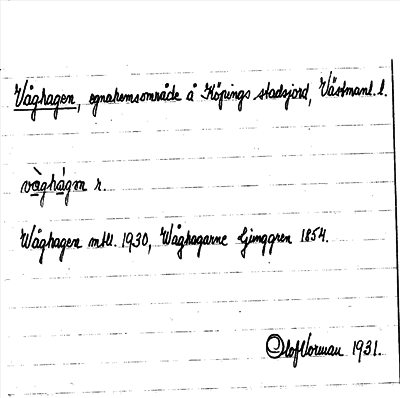 Våghagen, egnahemsområde å Köpings stadsjord, Västmanl. l.
vàghágen r.
Wåghagen mtll. 1930, Wåghagarne Ljunggren 1854.
Olof Norman 1931.